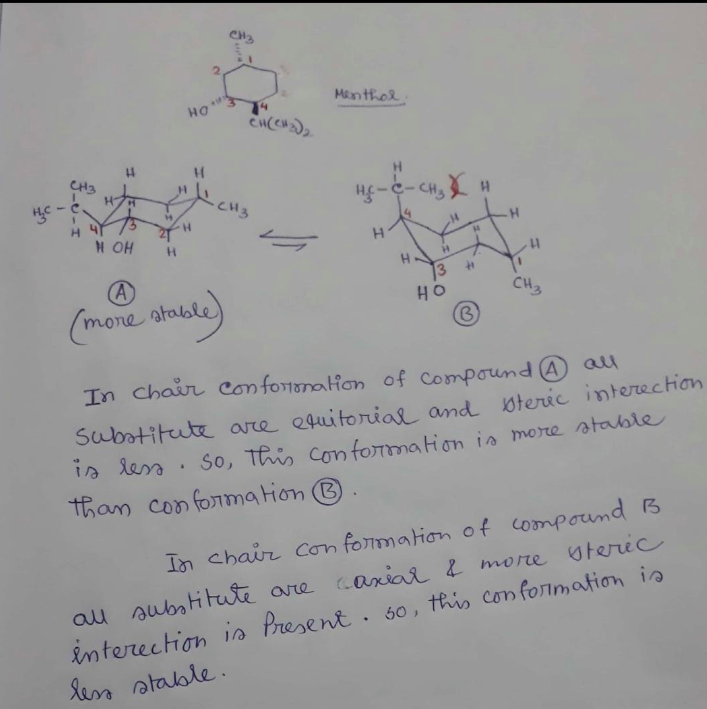 CH3
1
2
HO 3 4
CH(CH3)2
Menthol.
H
CH3 H H
H3C - C H H 1 CH3
H 4 H 3 2 H
H OH H
H
H3C - C - CH3 H
4 H H
H H H
H 3 H 1
HO CH3
A
(more stable)
B
In chair conformation of compound A all
substitute are equitorial and steric interection
is less. so, This conformation is more stable
than conformation B.
In chair conformation of compound B
all substitute are axial & more steric
interection is Present. so, this conformation is
less stable.